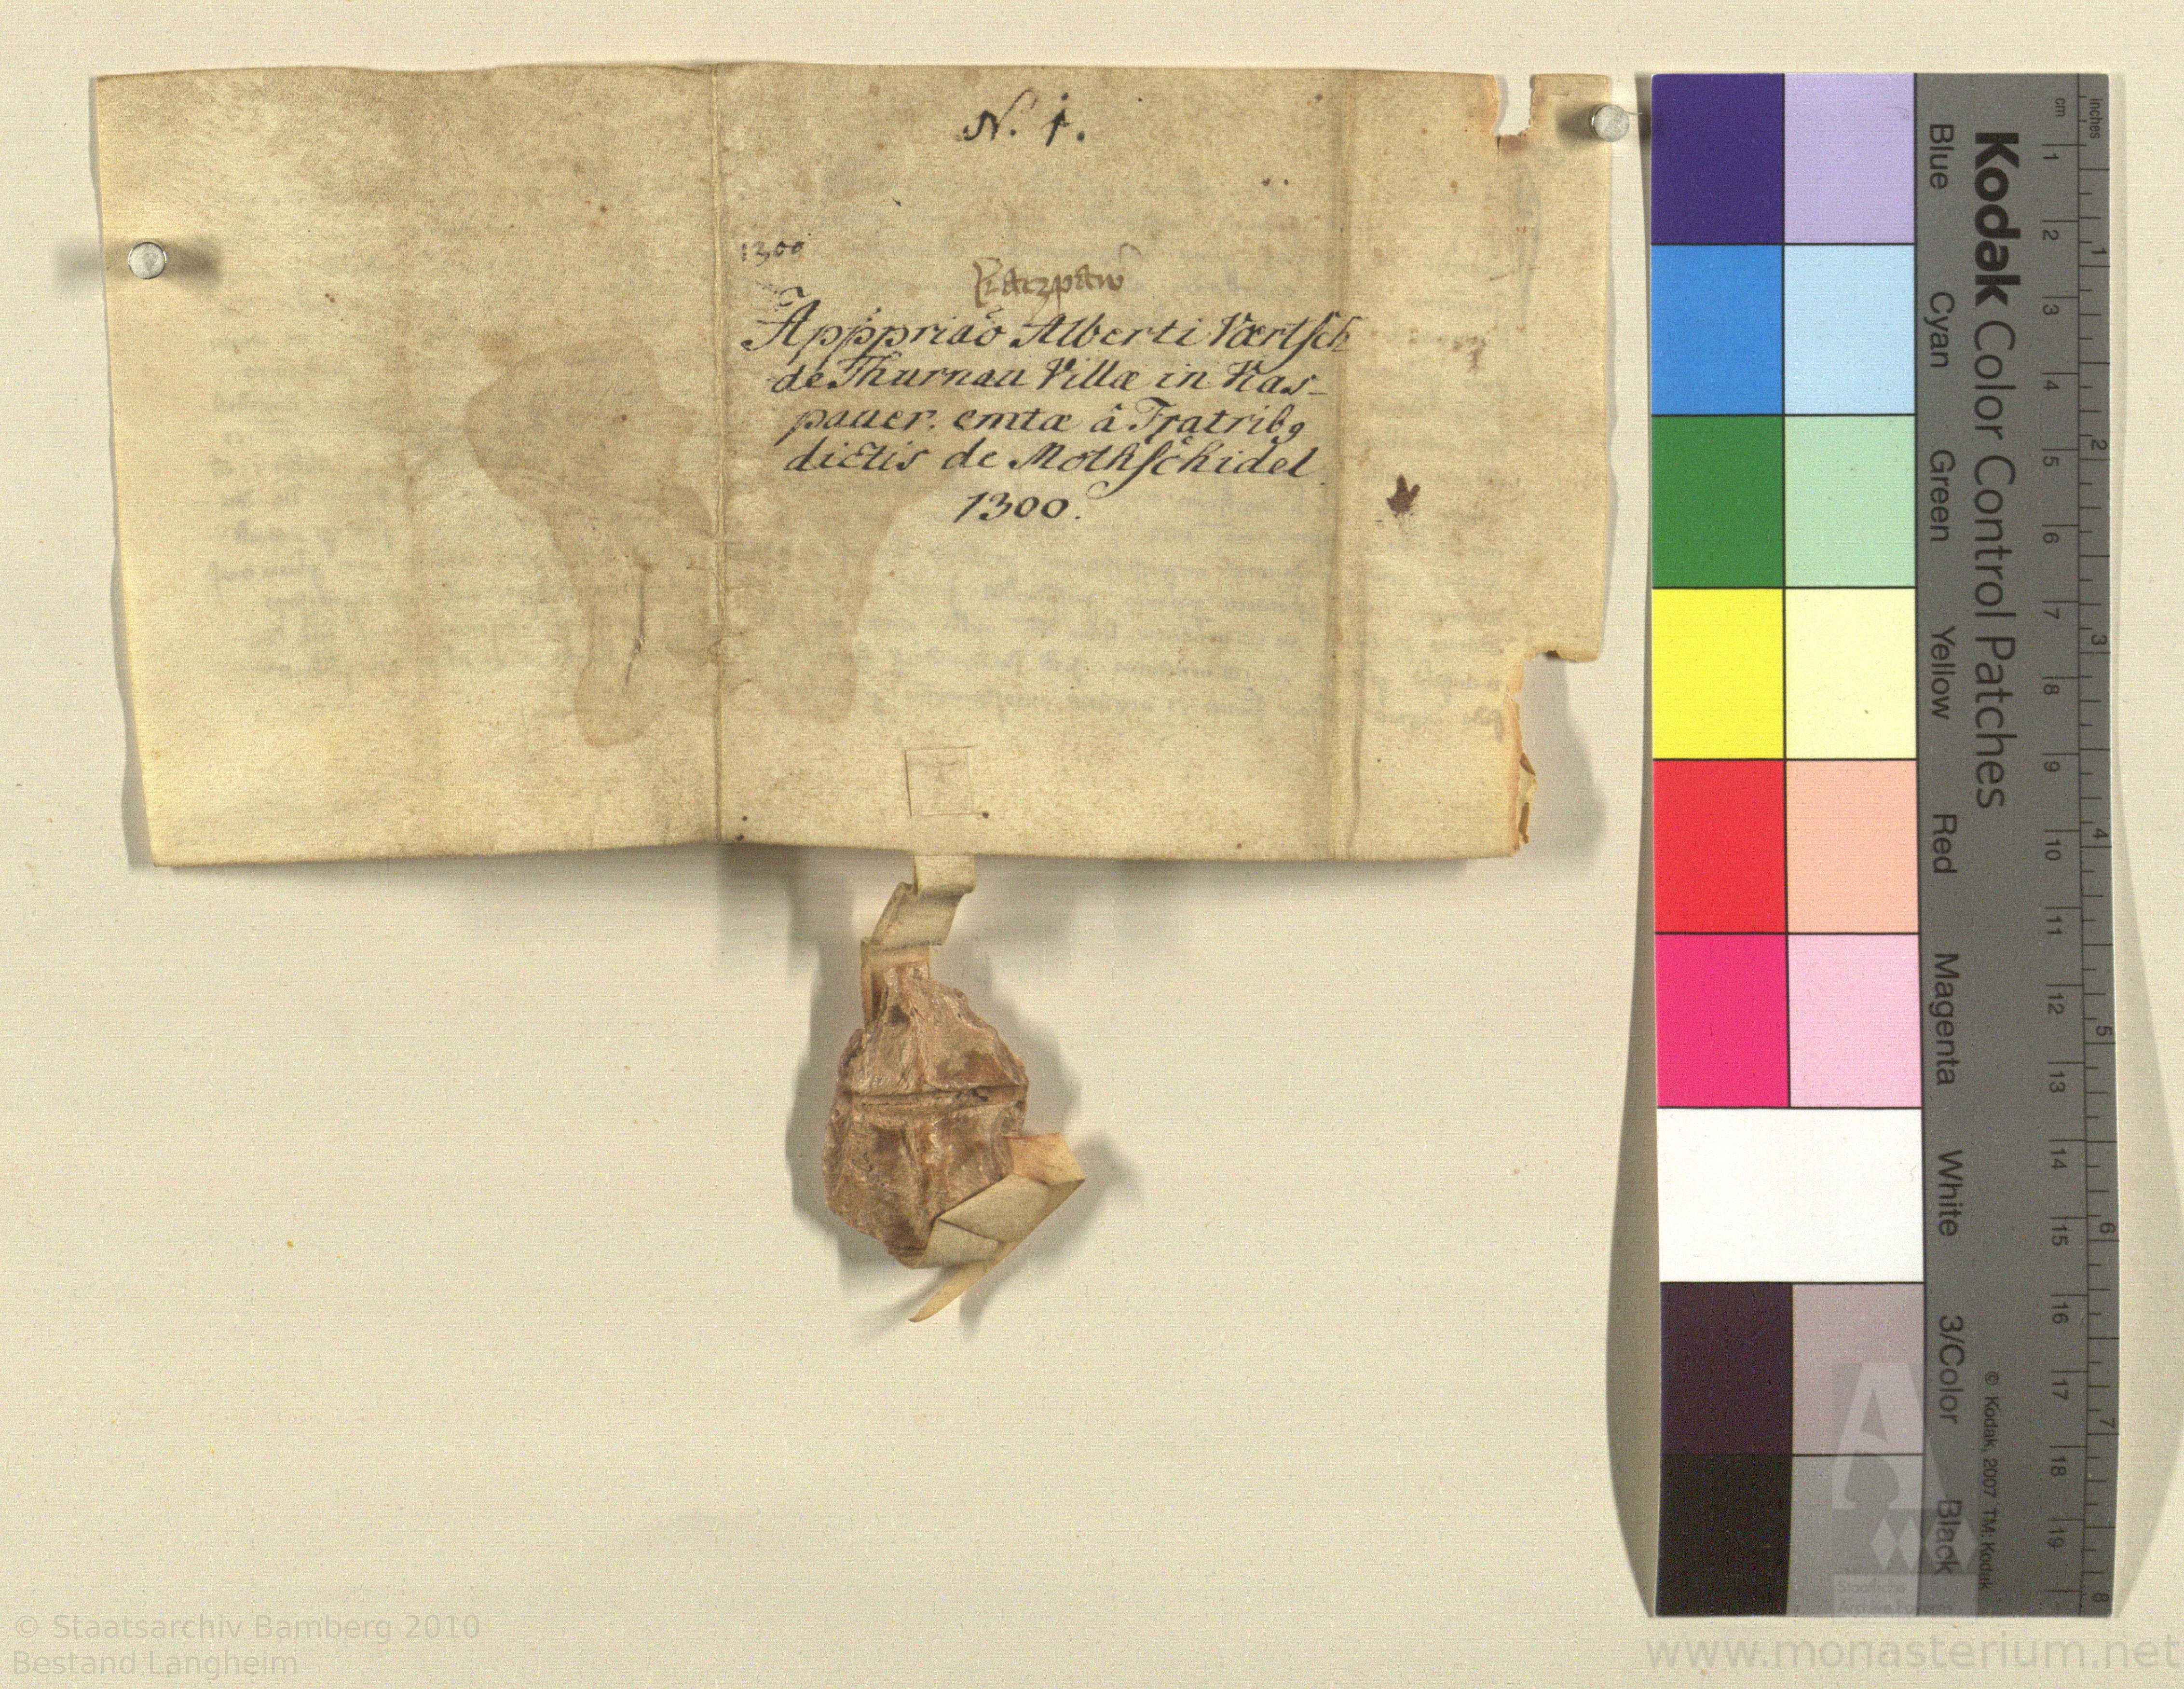 N. 1.
1300
Katzpaw
Apppriaõ Alberti Værtsch
de Thurnau Villæ in Kas-
pauer. emtæ â Fratribꝯ
dictis de Mothschidel
1300.
Kodak Color Control Patches
Blue Cyan Green Yellow Red Magenta White 3/Color Black
© Kodak, 2007 TM: Kodak
cm 1 2 3 4 5 6 7 8 9 10 11 12 13 14 15 16 17 18 19
inches 1 2 3 4 5 6 7 8
Staatliche
Archive Bayerns
© Staatsarchiv Bamberg 2010
Bestand Langheim
www.monasterium.net